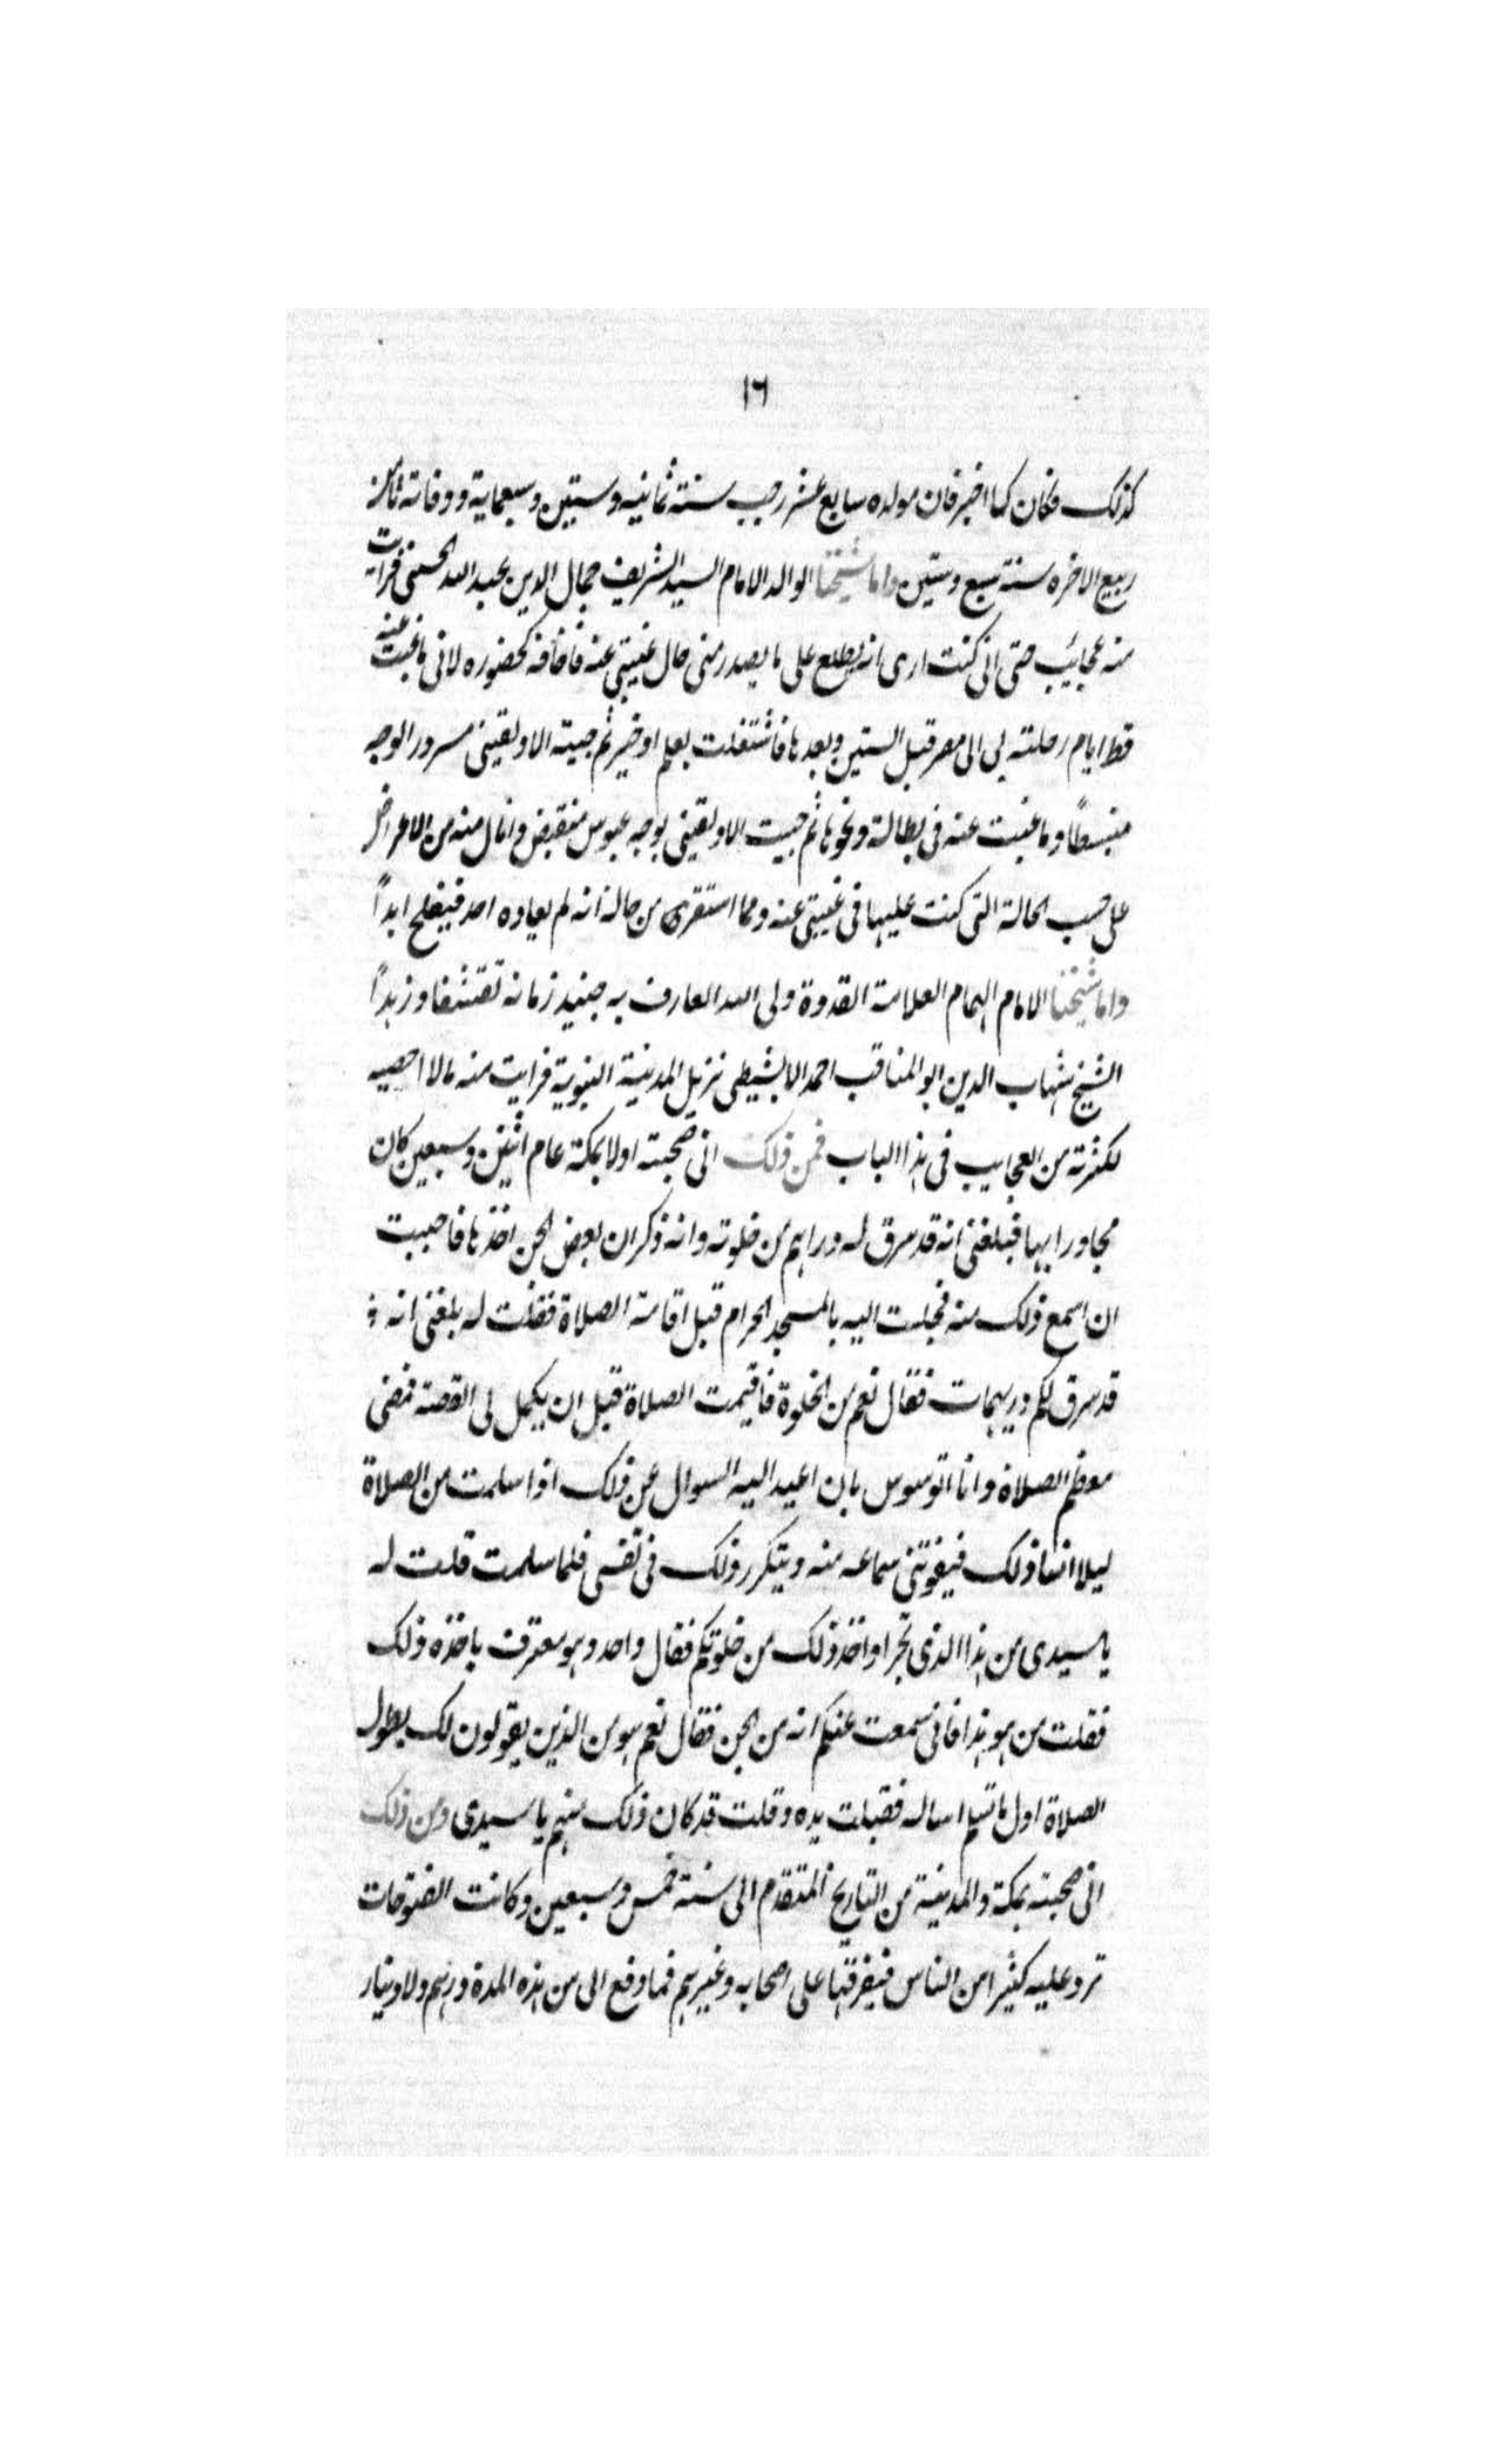 ١٦
كذلك فكان كما اخبر فان مولده سابع عشر رجب سنة ثمانية وستين وسبعماية ووفاته ثامن
ربيع الاخره سنة سبع وستين واما شيخنا الوالد الامام السيد الشريف جمال الدين عبد الله الحسنى فرايت
منه عجائب حتى انى كنت ارى انه يطلع على ما يصدر منى حال غيبتى عنه فاخافه كحضوره لانى ما غبت عنه
قط ايام رحلته بى الى مصر قبل الستين وبعدها فاشتغلت بعلم او خير ثم جيته الا ولقينى مسرور الوجه
منبسطاً وما غبت عنه فى بطالة ونحوها ثم جيت الا ولقينى بوجه عبوس منقبض وانال منه من الاعراض
على حسب الحالة التى كنت عليها فى غيبتى عنه ومما استقرى من حاله انه لم يعاده احد فيفلح ابداً
واما شيخنا الامام الهمام العلامة القدوة ولى الله العارف به جنيد زمانه تقشفا وزهداً
الشيخ شهاب الدين ابو المناقب احمد الابشيطى نزيل المدينة النبوية فرايت منه مالا احصيه
لكثرته من العجايب فى هذا الباب فمن ذلك انى صحبته اولا بمكة عام اثنين وسبعين كان
مجاورا بها فبلغنى انه قد سرق له دراهم من خلوته وانه ذكر ان بعض الجن اخذها فاحببت
ان اسمع ذلك منه فجلت اليه بالمسجد الحرام قبل اقامة الصلاة فقلت له بلغنى انه
قد سرق لكم دريهمات فقال نعم من الخلوة فاقيمت الصلاة قبل ان يكمل لى القصة فمضى
معظم الصلاة وانا اتوسوس بان اعيد اليه السوال عن ذلك اذا سلمت من الصلاة
ليلا انسا ذلك فيفوتنى سماعه منه ويتكرر ذلك فى نفسى فلما سلمت قلت له
يا سيدى من هذا الذى تجرا واخذ ذلك من خلوتكم فقال واحد وهو معترف باخذه ذلك
فقلت من هو هذا فانى سمعت عنكم انه من الجن فقال نعم هو من الذين يقولون لك بطول
الصلاة اول ما تسلم اساله فقبلت يده وقلت قد كان ذلك منهم يا سيدى ومن ذلك
انى صحبته بمكة والمدينة من التاريخ المتقدم الى سنة خمس وسبعين وكانت الفتوحات
ترد عليه كثيرا من الناس فيفرقها على اصحابه وغيرهم فما دفع الى من هذه المدة درهم ولا دينار